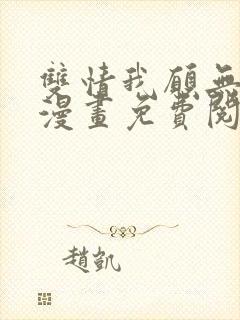 雙情我願無
漫畫免費閱
趙凱